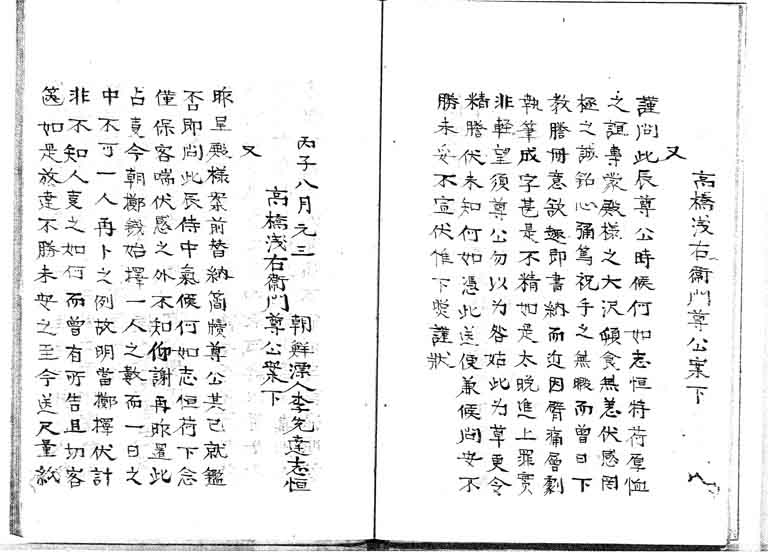 高橋浅右衛門尊公案下
又
謹問此辰尊公時候何如志恒特荷厚恤
之誼專蒙殿様之大沢傾食無恙伏感罔
極之誠銘心彌篤祝手之無暇而曽日下
教謄冊意欲趣即書納而近因臂痛層劇
執筆成字甚是不精如是太晩進上罪實
非軽望須尊公勿以為咎姑此為草更令
精謄伏未知何如憑此送便兼候問安不
勝未安不宣伏惟下㷊謹狀
丙子八月元三
朝鮮漂人李先達志恒
高橋浅右衛門尊公案下
又
昨呈殿様案前替納簡牘尊公其已就鑑
否即問此辰侍中氣候何如志恒荷下念
僅保客喘伏感之外不知仰謝再昨置此
占責今朝擲錢始擇一人之數而一日之
中不可一人再卜之例故明當擲擇伏計
非不知人責之如何而曽有所告且切客
篋如是放達不勝未安之至今送尺量紙